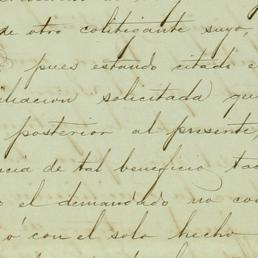 de otro colitigante suyo,
pues estando citado e
iliacion solicitada que
posterior al presente,
ncia de tal beneficio tac
o el demandado no con
ó con el solo hecho